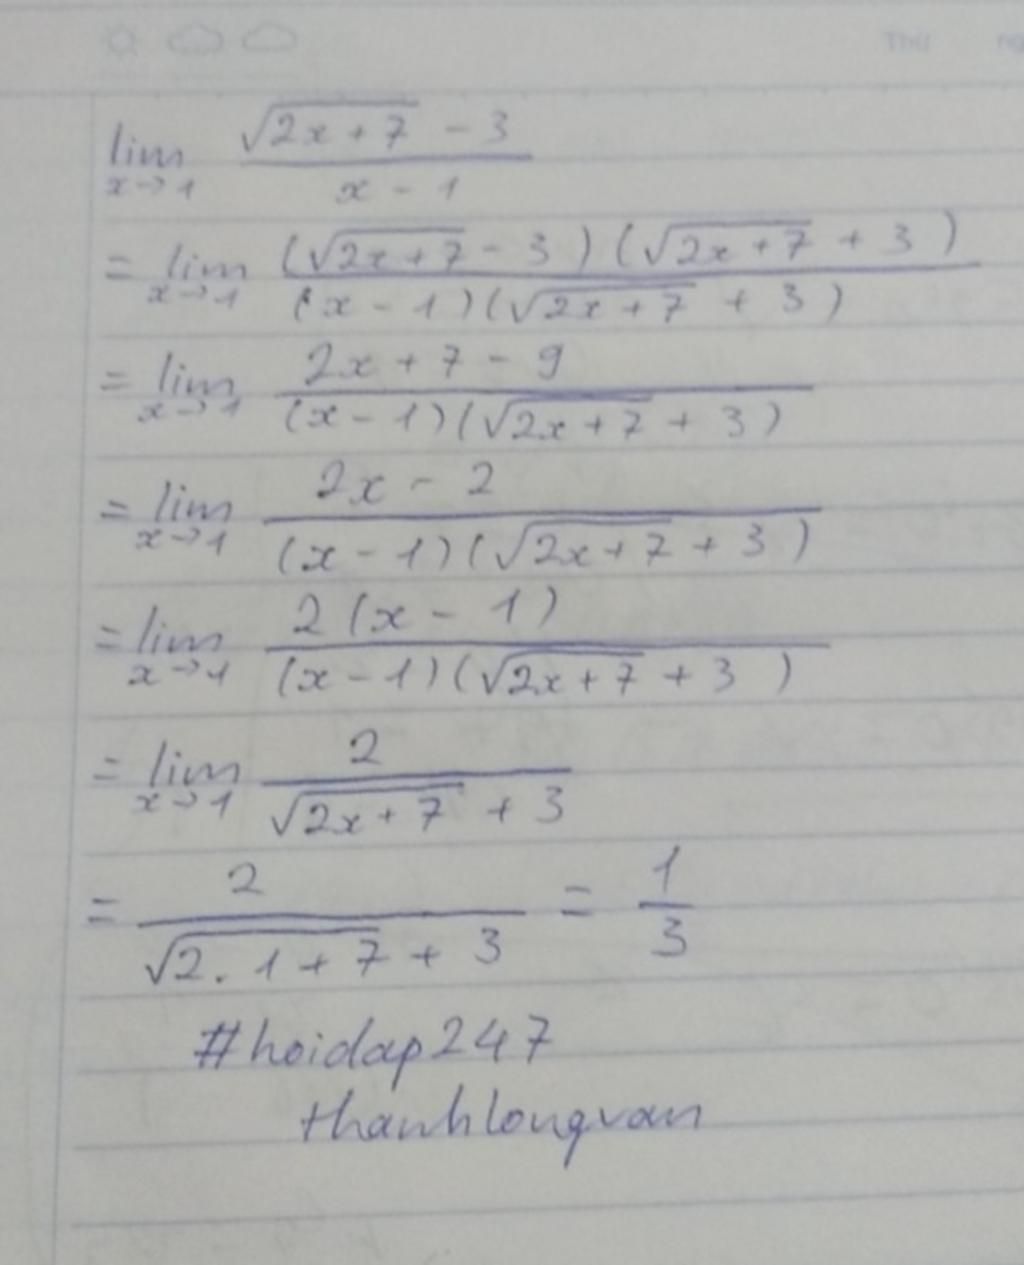 Thứ
lim x→1 (√(2x + 7) - 3)/(x - 1)
= lim x→1 ((√(2x+7) - 3)(√(2x+7) + 3))/((x - 1)(√(2x+7) + 3))
= lim x→1 (2x + 7 - 9)/((x - 1)(√(2x+7) + 3))
= lim x→1 (2x - 2)/((x - 1)(√(2x+7) + 3))
= lim x→1 (2(x - 1))/((x - 1)(√(2x+7) + 3))
= lim x→1 2/(√(2x+7) + 3)
= 2/(√(2.1+7) + 3) = 1/3
#hoidap247
thanhlongvan